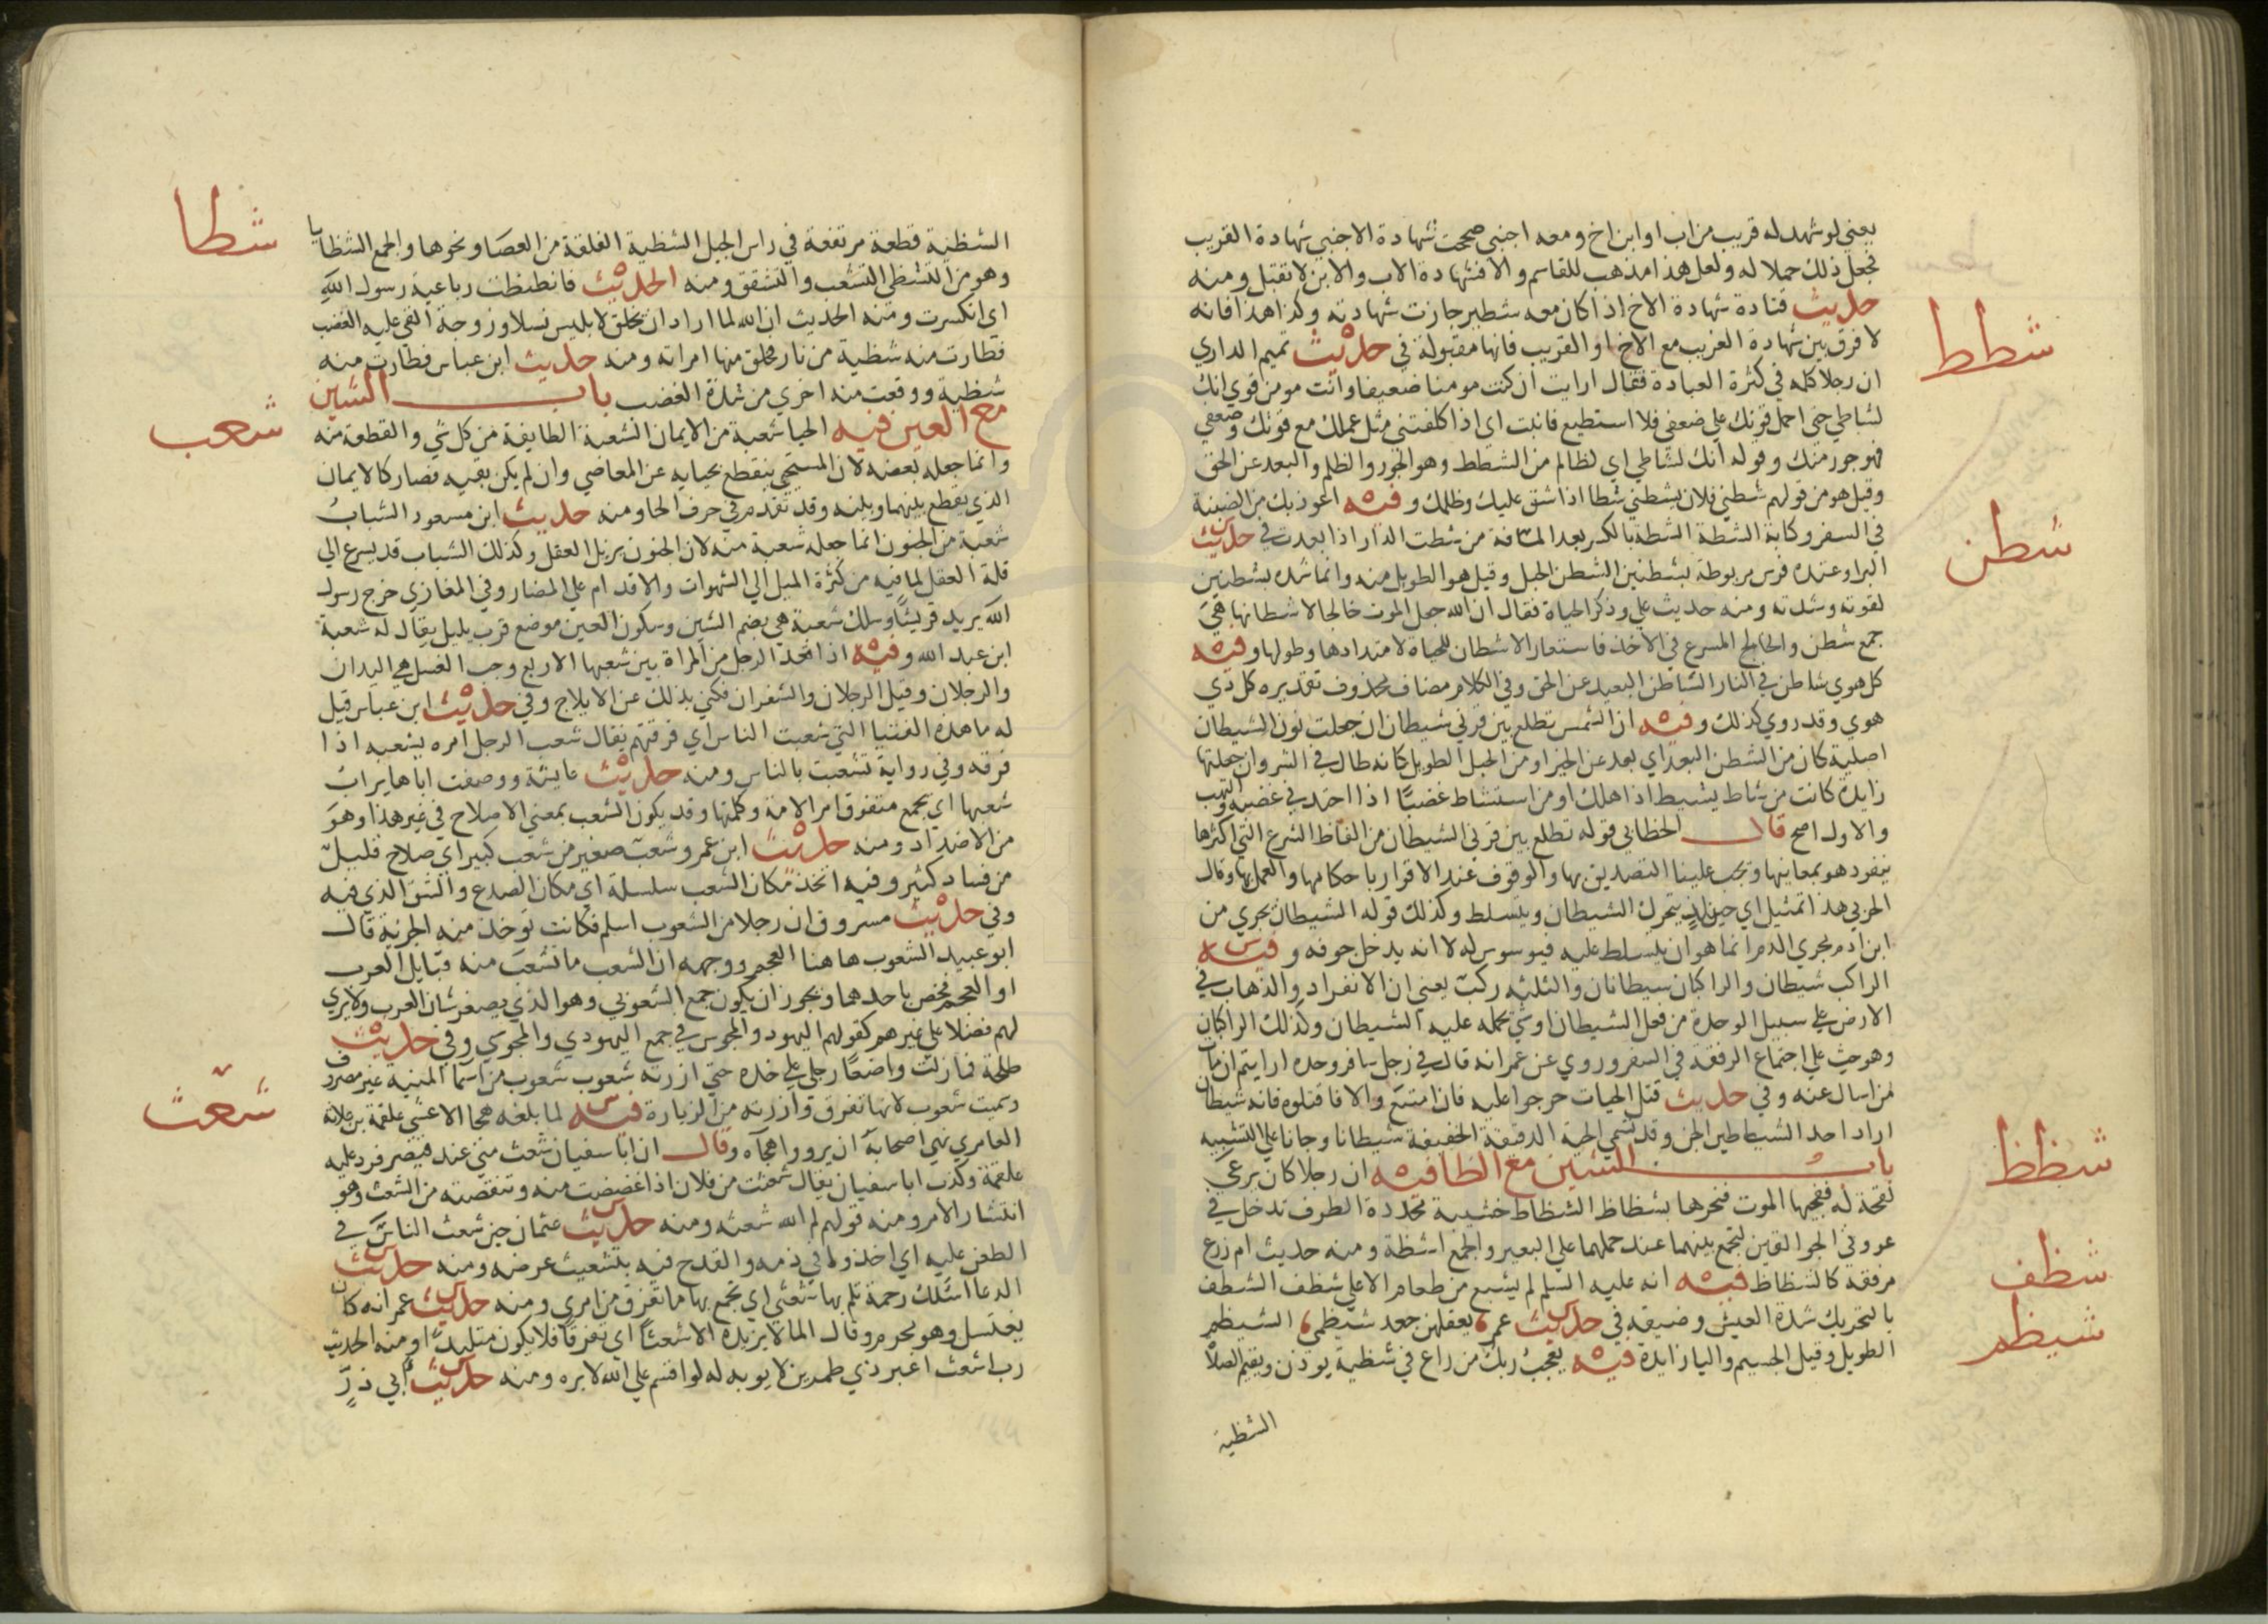 يعني لو شهد له قريب من اب او ابن اخ ومعه اجنبي صحت شهادة الاجنبي شهادة القريب
فجعل ذلك حملا له ولعل هذا مذهب للقاسم والا فشهادة الاب والابن لا تقبل ومنه
حديث قتادة شهادة الاخ اذا كان معه شطير جازت شهادته وكذا هذا فانه
شطط
لا فرق بين شهادة الغريب مع الاخ او القريب فانها مقبولة في حديث تميم الداري
ان رجلا كلمه في كثرة العبادة فقال ارايت ان كنت مومنا ضعيفا وانت مومن قوي انك
لشاطي حتى احمل قوتك على ضعفي فلا استطيع فانبت اى اذا كلفتني مثل عملك مع قوتك وضعفي
فهو جور منك وقوله انك لشاطي اي لظالم من الشطط وهو الجور والظلم والبعد عن الحق
وقيل هو من قولهم شطني فلان يشطني شطا اذا شق عليك وظلمك وفيه اعوذ بك من الضبنة
في السفر وكابة الشطة الشطة بالكسر بعد المسافة من شطت الدار اذا بعدت في حديث
شطن
البراوعنده فرس مربوطة بشطنين الشطن الحبل وقيل هو الطويل منه وانما شده بشطنين
لقوته وشدته ومنه حديث علي وذكر الحياة فقال ان الله جعل الموت خالجا لاشطانها هي
جمع شطن والخالج المسرع في الاخذ فاستعار الاشطان للحياة لامتدادها وطولها وفيه
كل هوي شاطن في النار الشاطن البعيد عن الحق وفي الكلام مضاف محذوف تقديره كل ذي
هوي وقد روي كذلك وفيه ان الشمس تطلع بين قرني شيطان ان جعلت نون الشيطان
اصلية كان من الشطن البعد اي بعد عن الخير او من الحبل الطويل كانه طال في الشر وان جعلتها
زايدة كانت من شاط يشيط اذا هلك او من استشاط غضبا اذا احتد في غضبه والتهب
والاول اصح قال الخطابي قوله تطلع بين قرني الشيطان من الفاظ الشرع التي اكثرها
ينفرد هو بمعانيها ويجب علينا التصديق بها والوقوف عند الاقرار باحكامها والعمل بها وقال
الحربي هذا تمثيل اي حينئذ يتحرك الشيطان ويتسلط وكذلك قوله الشيطان يجري من
ابن ادم مجري الدم انما هو ان يتسلط عليه فيوسوس له لا انه يدخل جوفه وفيه
الراكب شيطان والراكبان شيطانان والثلثه ركب يعني ان الانفراد والذهاب في
الارض علي سبيل الوحدة من فعل الشيطان او شي يحمله عليه الشيطان وكذلك الراكبان
وهو حث علي اجتماع الرفقة في السفر وروي عن عمر انه قال في رجل سافر وحده ارايتم ان مات
من اسال عنه وفي حديث قتل الحيات حرجوا عليه فان امتنع والا فاقتلوه فانه شيطان
اراد احد الشياطين الجن وقد تسمي الحية الدقيقة الخفيفة شيطانا وجانا علي التشبيه
شظظ
باب الشين مع الظا فيه ان رجلا كان يرعى
لقحة له ففجيها الموت فنحرها بشظاظ الشظاظ خشبة محددة الطرف تدخل في
عروتي الجوالقين لتجمع بينهما عند حملهما علي البعير والجمع اشظة ومنه حديث ام زرع
شظف
مرفقه كالشظاظ فيه انه عليه السلم لم يشبع من طعام الا على شظف الشظف
بالتحريك شدة العيش وضيقه في حديث عمر يعقلهن جعد شيظمي الشيظم
شيظم
الطويل وقيل الجسيم واليا زايدة فيه يعجب ربك من راع في شظية يوذن ويقيم الصلاة
الشظية
شظا
الشظية قطعة مرتفعة في راس الجبل الشظية الفلقة من العصا ونحوها والجمع الشظايا
وهو من التشظي التشعب والتشقق ومنه الحديث فانشظت رباعية رسول الله
اى انكسرت ومنه الحديث ان الله لما اراد ان يخلق لابليس نسلا وزوجة القي عليه الغضب
فطارت منه شظية من نار فخلق منها امراته ومنه حديث ابن عباس فطارت منه
شظية ووقعت منه اخري من شدة الغضب باب الشين
شعب
مع العين فيه الحيا شعبة من الايمان الشعبة الطايفة من كل شي والقطعة منه
وانما جعله بعضه لان المستحي ينقطع بحيايه عن المعاصي وان لم يكن بقيه فصار كالايمان
الذي يقطع بينهما وبينه وقد تقدم في حرف الحا ومنه حديث ابن مسعود الشباب
شعبة من الجنون انما جعله شعبة منه لان الجنون يزيل العقل وكذلك الشباب قد يسرع الي
قلة العقل لما فيه من كثرة الميل الي الشهوات والاقدام علي المضار وفي المغازي خرج رسول
الله يريد قريشا وسلك شعبة هي بضم الشين وسكون العين موضع قرب يليل يقال له شعبة
ابن عبد الله وفيه اذا قعد الرجل من المراة بين شعبها الاربع وجب الغسل هي اليدان
والرجلان وقيل الرجلان والشفران فكني بذلك عن الايلاج وفي حديث ابن عباس قيل
له ما هذه الفتيا التي شعبت الناس اي فرقتهم يقال شعب الرجل امره يشعبه اذا
فرقه وفي رواية تشعبت بالناس ومنه حديث عايشة ووصفت اباها يراب
شعبها اي يجمع متفرق امر الامة وكلمتها وقد يكون الشعب بمعني الاصلاح في غير هذا وهو
من الاضداد ومنه حديث ابن عمر وشعب صغير من شعب كبير اي صلاح قليل
من فساد كثير وفيه اتخذ مكان الشعب سلسلة اي مكان الصدع والشق الذي فيه
وفي حديث مسروق ان رجلا من الشعوب اسلم فكانت توخذ منه الجزية قال
ابو عبيد الشعوب هاهنا العجم ووجهه ان الشعب ما تشعب منه قبايل العرب
او العجم فخص باحدهما ويجوز ان يكون جمع الشعوبي وهو الذي يصغر شان العرب ولا يري
لهم فضلا علي غيرهم كقولهم اليهود والمجوس في جمع اليهودي والمجوسي وفي حديث
طلحة فما زلت واضعا رجلي علي خده حتي ازرته شعوب شعوب من اسما المنية غير مصروف
وسميت شعوب لانها تفرق وازرته من الزيارة فيه لما بلغه هجا الاعشي علقمة بن علاثة
شعث
العامري نهي اصحابه ان يرووا هجآه وقال ان ابا سفيان شعث مني عند قيصر فرد عليه
علقمة وكذب ابا سفيان يقال شعثت من فلان اذا غضضت منه وتنقصته من الشعث وهو
انتشار الامر ومنه قولهم لم الله شعثه ومنه حديث عثمان حين شعث الناس في
الطعن عليه اي اخذوا في ذمه والقدح فيه بتشعيث عرضه ومنه حديث
الدعا اسئلك رحمة تلم بها شعثي اي تجمع بها ما تفرق من امري ومنه حديث عمر انه كان
يغتسل وهو محرم وقال الما لا يزيده الا شعثا اي تفرقا فلا يكون متلبدا ومنه الحديث
رب اشعث اغبر ذي طمرين لا يوبه له لو اقسم علي الله لابره ومنه حديث ابي ذر